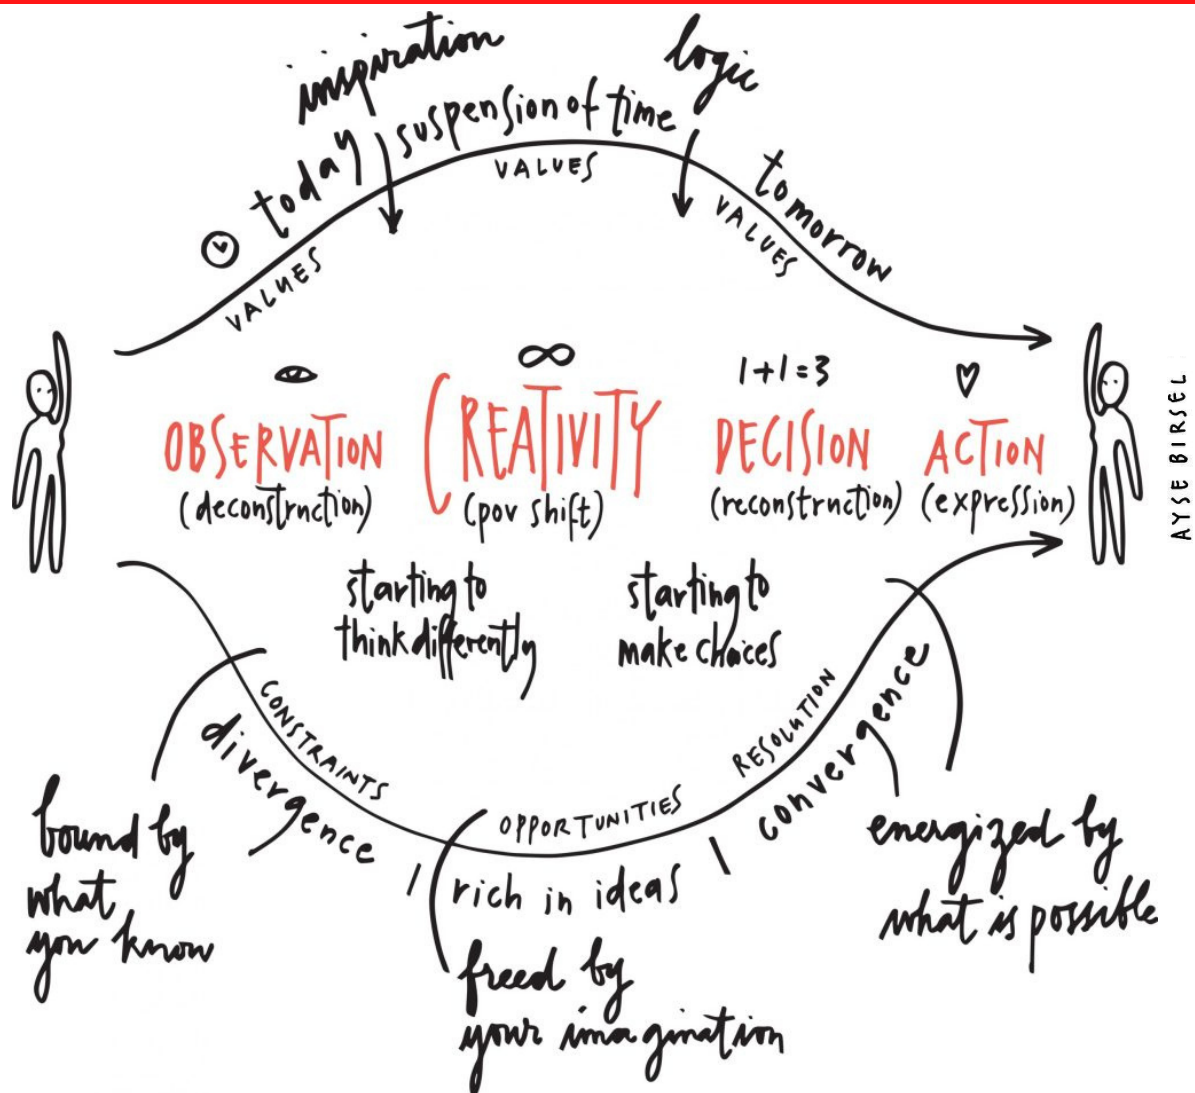 inspiration
logic
today
suspension of time
tomorrow
VALUES
VALUES
VALUES
1+1=3
OBSERVATION
CREATIVITY
DECISION
ACTION
(deconstruction)
(pov shift)
(reconstruction)
(expression)
AYSE BIRSEL
starting to
think differently
starting to
make choices
CONSTRAINTS
OPPORTUNITIES
RESOLUTION
divergence
rich in ideas
convergence
bound by
what
you know
freed by
your imagination
energized by
what is possible